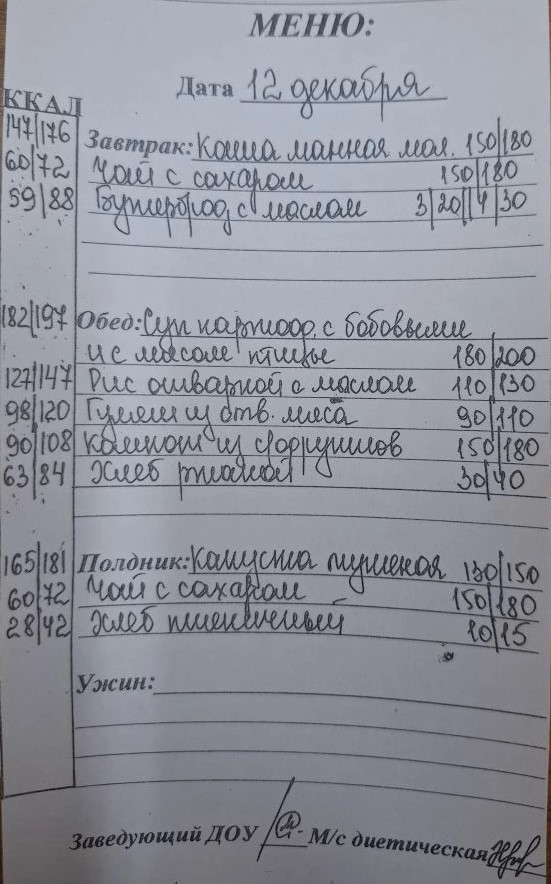 МЕНЮ:
Дата 12 декабря
ККАЛ
147|176 Завтрак: Каша манная мол. 150|180
60|72 Чай с сахаром 150|180
59|88 Бутерброд с маслом 3|20||4|30
182|197 Обед: Суп картоф. с бобовыми
и с мясом птицы 180|200
127|147 Рис отварной с маслом 110|130
98|120 Гуляш из отв. мяса 90|110
90|108 Компот из с/фруктов 150|180
63|84 Хлеб ржаной 30|40
165|181 Полдник: Капуста тушеная 130|150
60|72 Чай с сахаром 150|180
28|42 Хлеб пшеничный 10|15
Ужин:
Заведующий ДОУ М/с диетическая